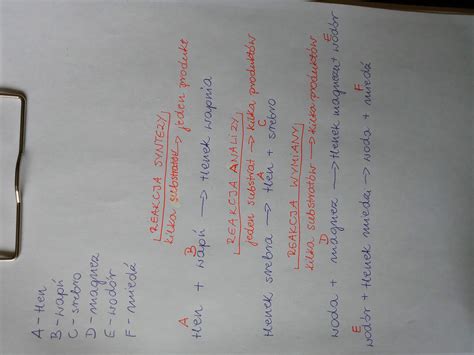 A - tlen
B - wapń
C - srebro
D - magnez
E - wodór
F - miedź
REAKCJA SYNTEZY
kilka substratów → jeden produkt
A B
tlen + wapń → tlenek wapnia
REAKCJA ANALIZY
jeden substrat → kilka produktów
A C
tlenek srebra → tlen + srebro
REAKCJA WYMIANY
kilka substratów → kilka produktów
D E
woda + magnez → tlenek magnezu + wodór
E F
wodór + tlenek miedzi → woda + miedź